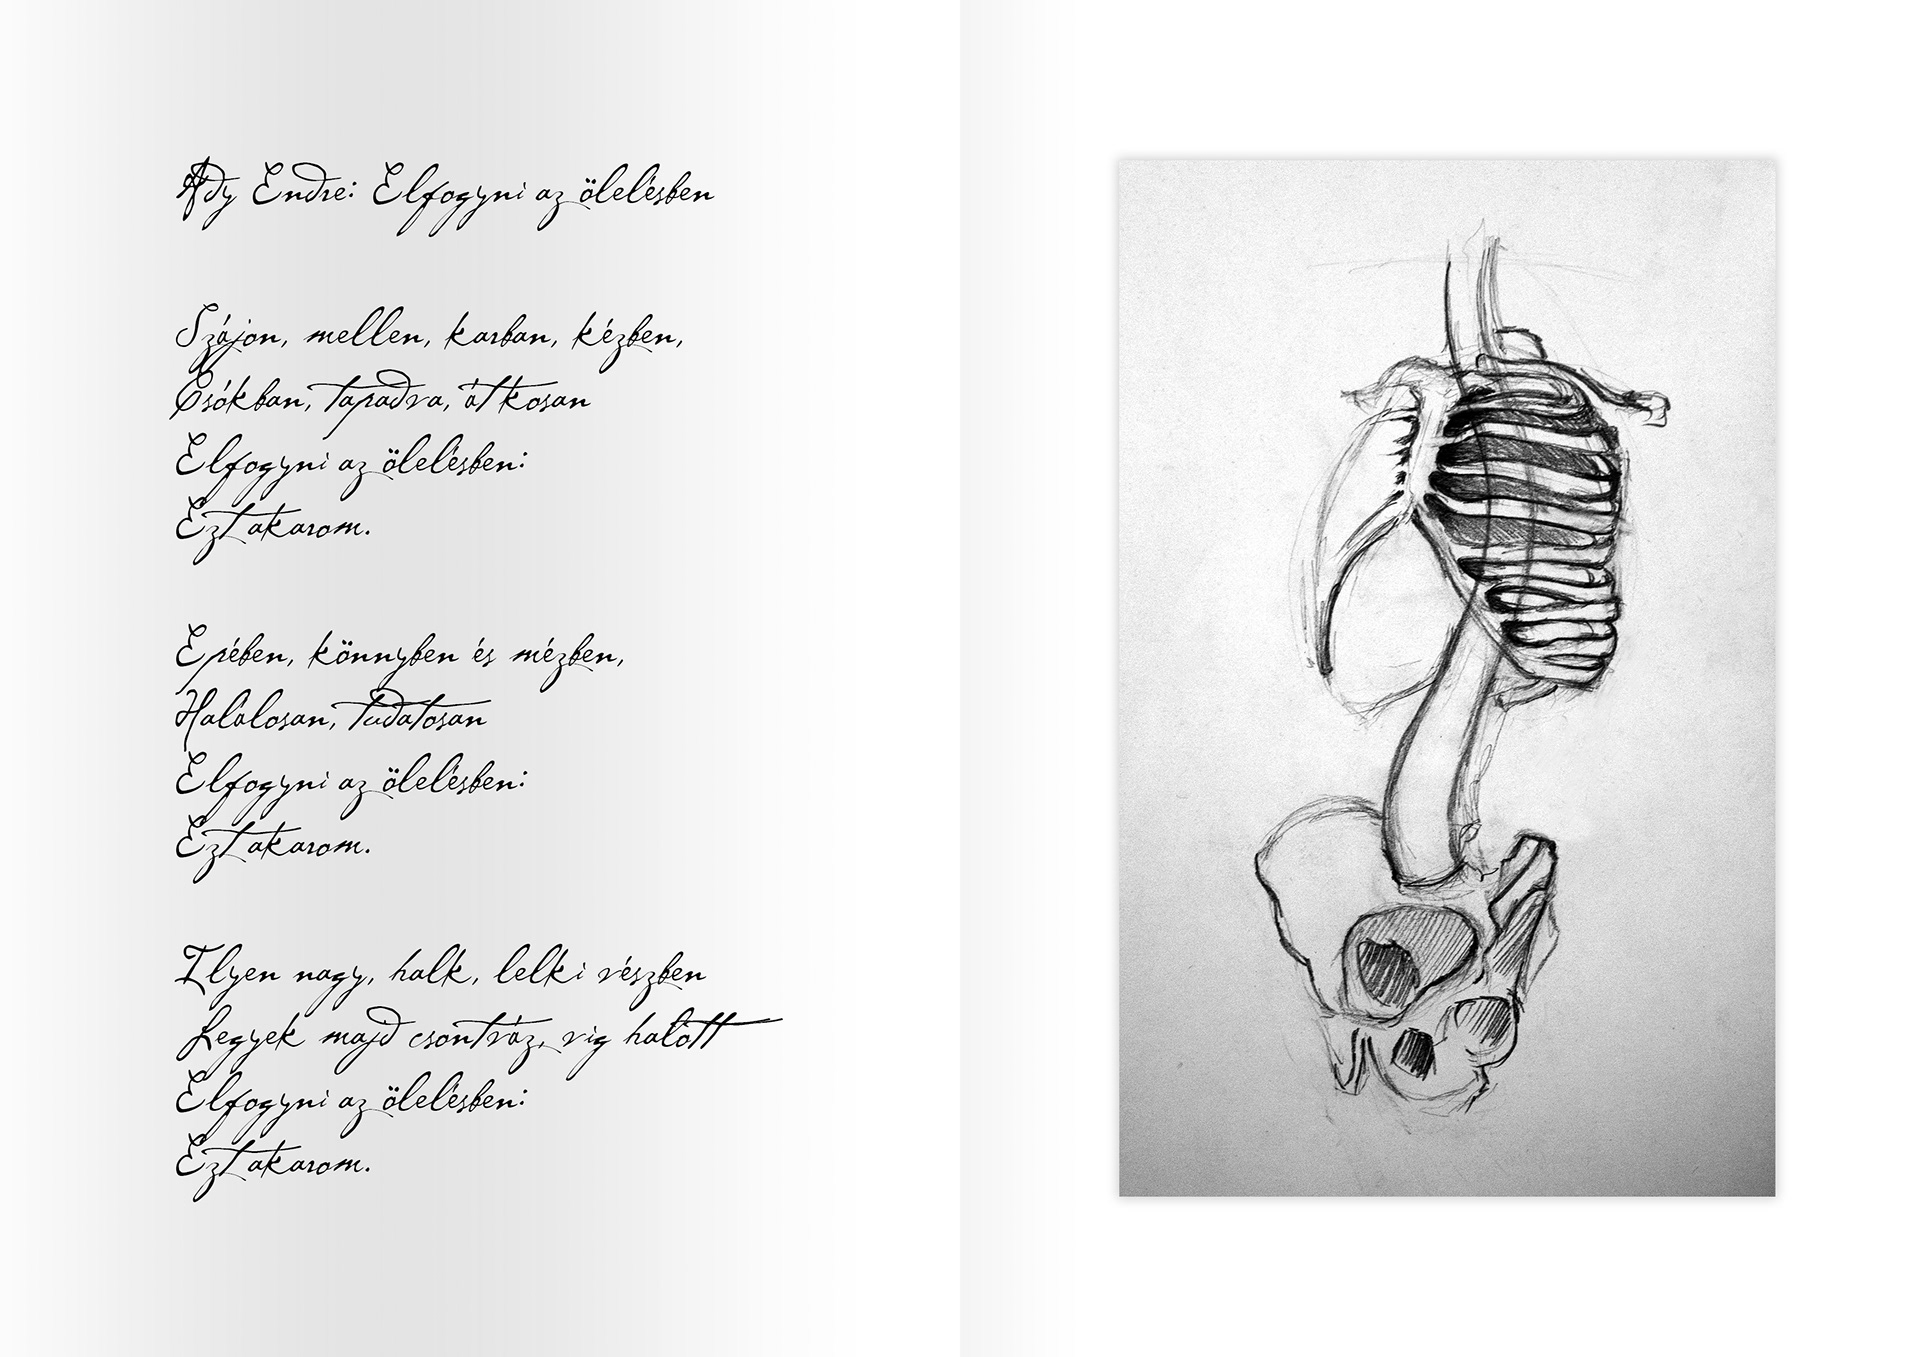 Ady Endre: Elfogyni az ölelésben
Szájon, mellen, karban, kézben,
Csókban, tapadva, átkosan
Elfogyni az ölelésben:
Ezt akarom.
Epében, könnyben és mézben,
Halálosan, tudatosan
Elfogyni az ölelésben:
Ezt akarom.
Ilyen nagy, halk, lelki részben
Legyek majd csontváz, vig halott
Elfogyni az ölelésben:
Ezt akarom.